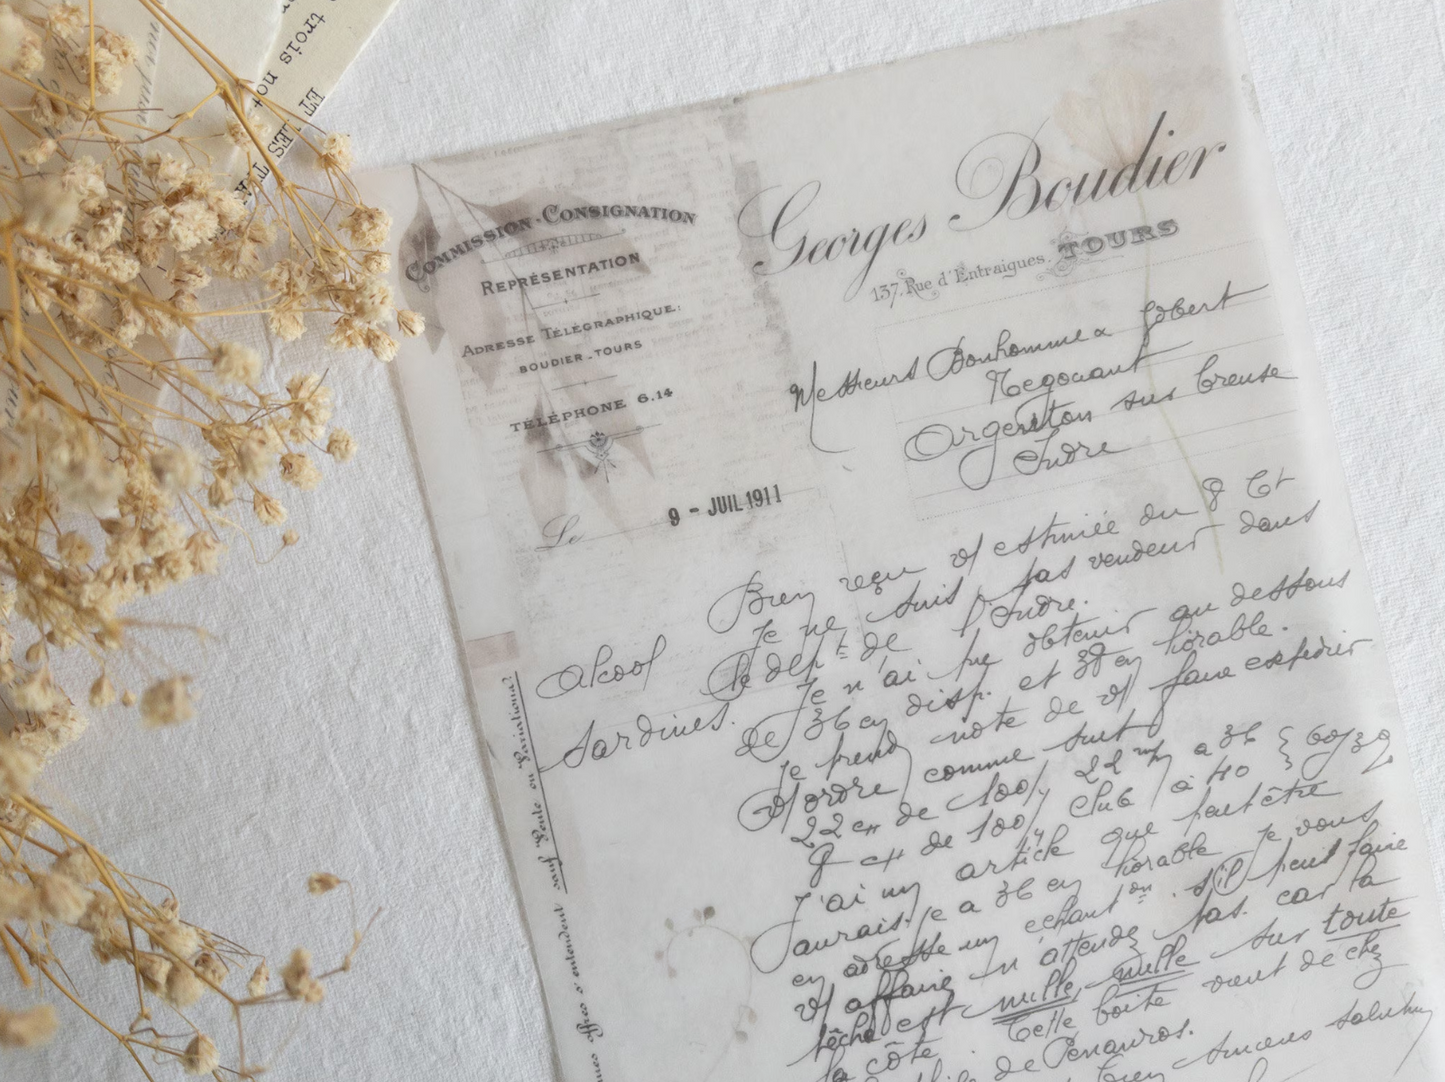 trois not
ET LES T
COMMISSION-CONSIGNATION
REPRÉSENTATION
ADRESSE TÉLÉGRAPHIQUE:
BOUDIER-TOURS
TÉLÉPHONE 6.14
Georges Boudier
137, Rue d'Entraigues. TOURS
Messieurs Bonhomme &
Negociant
Argenton sur Creuse
Indre
Le 9 - JUIL 1911
Bien reçu v/ estimée du 8 Ct
Je ne suis pas vendeur dans
Alcool le dépt de l'Indre.
Sardines. Je n'ai pu obtenir au dessous
de 36 en disp. et 38 en livrable.
Je prends note de v/ faire expédier
v/ ordre comme suit
22 c/ de 100/ 22 m/m a 36 } 60/32
8 c/ de 100/ club a 40
J'ai un article que peut être
aurais-je a 36 en livrable Je vous
en adresse un échanton. s'il peut faire
v/ affaire n'attendez pas. car la
pêche est nulle, nulle sur toute
la côte. Cette boîte vient de chez
de Penanros.
bien sincères salut
offres s'entendent sauf Vente ou Variations